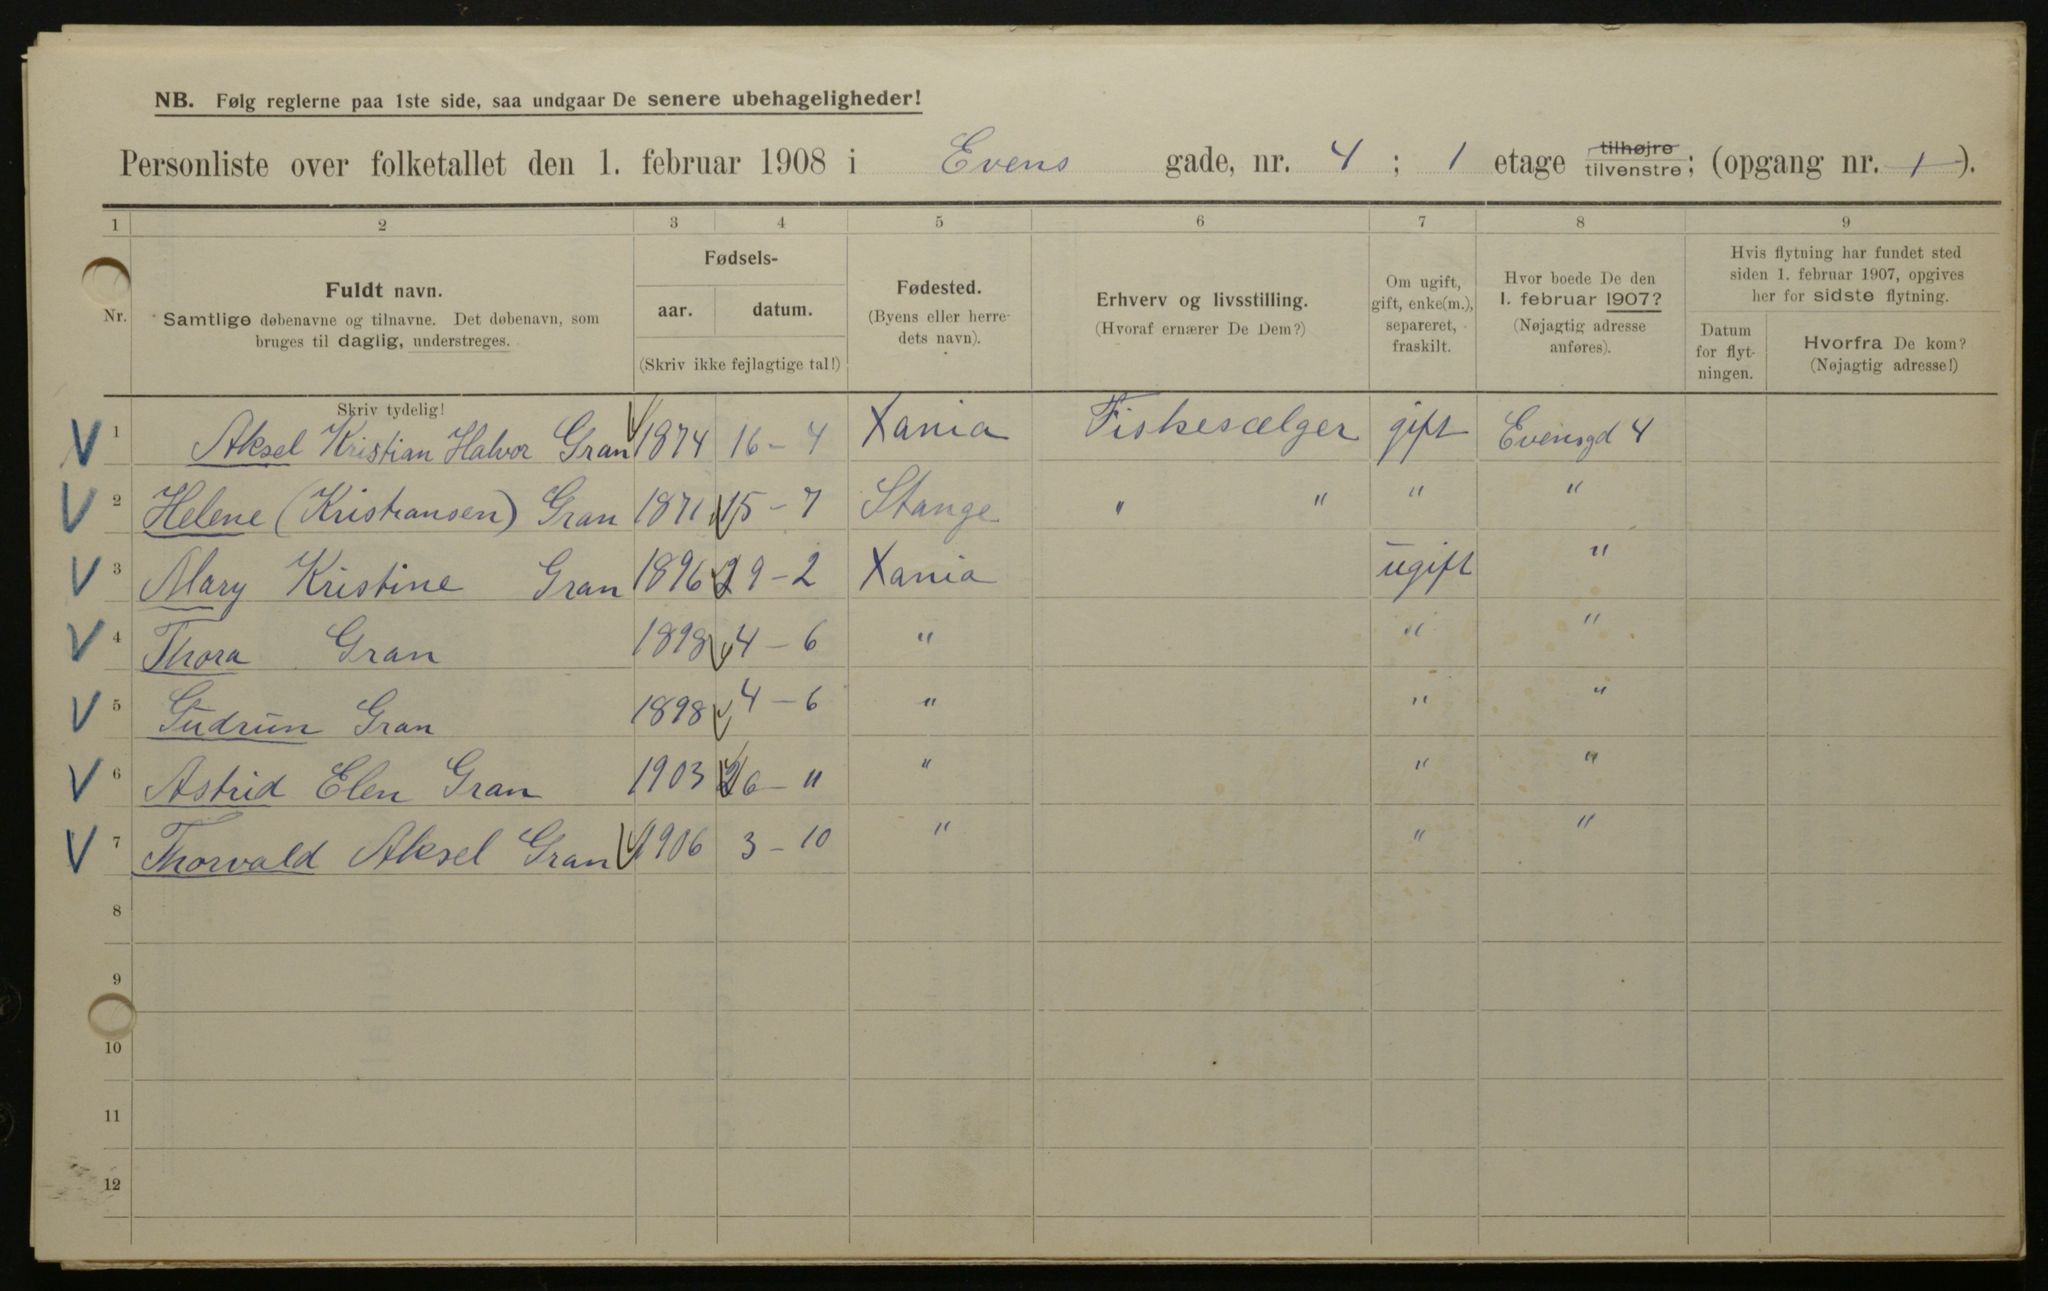 NB. Følg reglerne paa 1ste side, saa undgaar De senere ubehageligheder!
Personliste over folketallet den 1. februar 1908 i Evens gade, nr. 4 ; 1 etage tilhøjre tilvenstre; (opgang nr. 1 ).
1 2 3 4 5 6 7 8 9
Nr.
Fuldt navn.
Samtlige døbenavne og tilnavne. Det døbenavn, som
bruges til daglig, understreges.
Skriv tydelig!
Fødsels-
aar. datum.
(Skriv ikke fejlagtige tal!)
Fødested.
(Byens eller herre-
dets navn).
Erhverv og livsstilling.
(Hvoraf ernærer De Dem?)
Om ugift,
gift, enke(m.),
separeret,
fraskilt.
Hvor boede De den
1. februar 1907?
(Nøjagtig adresse
anføres).
Hvis flytning har fundet sted
siden 1. februar 1907, opgives
her for sidste flytning.
Datum
for flyt-
ningen.
Hvorfra De kom?
(Nøjagtig adresse!)
V 1 Aksel Kristian Halvor Gran 1874 16 - 4 Xania Fiskesælger gift Evensgd 4
V 2 Helene (Kristiansen) Gran 1871 15 - 7 Stange " " " "
V 3 Mary Kristine Gran 1896 29 - 2 Xania ugift "
V 4 Thora Gran 1898 4 - 6 " " "
V 5 Gudrun Gran 1898 4 - 6 " " "
V 6 Astrid Elen Gran 1903 26 - 11 " " "
V 7 Thorvald Aksel Gran 1906 3 - 10 " " "
8
9
10
11
12